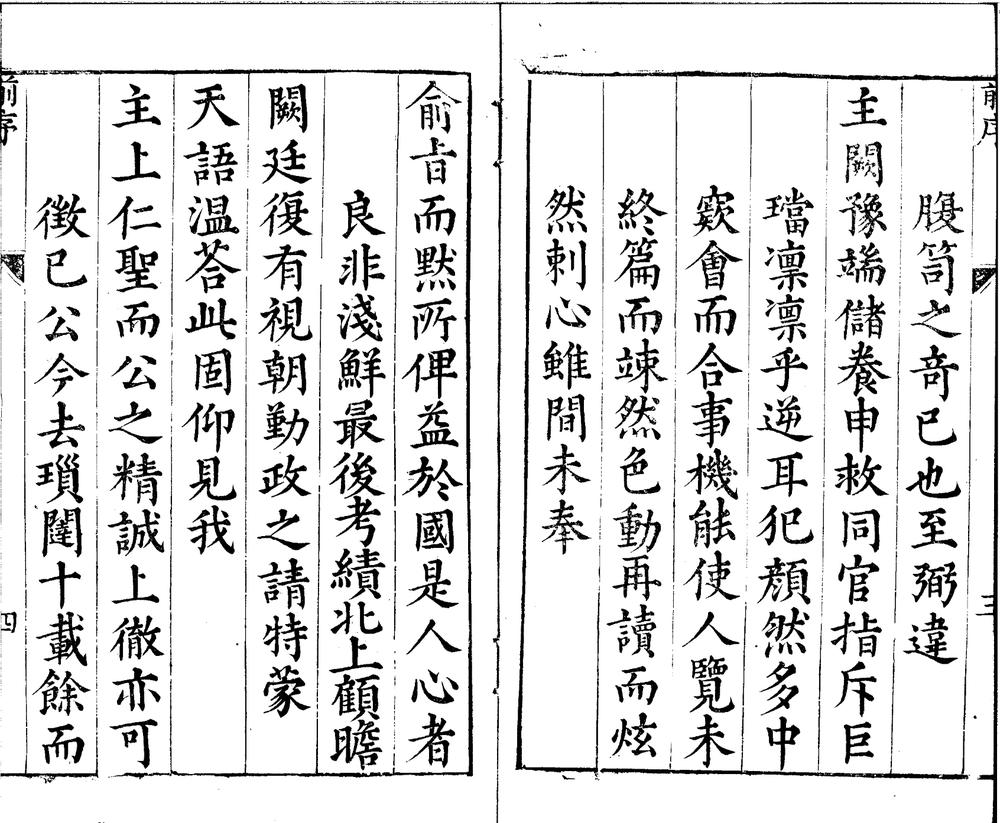 前序
三
腹笥之竒已也至弼違
主闕豫端儲養申救同官指斥巨
璫凜凜乎逆耳犯顔然多中
窾會而合事機能使人覽未
終篇而竦然色動再讀而炫
然刺心雖間未奉
俞㫖而默所俾益於國是人心者
良非淺鮮最後考績北上顧瞻
闕廷復有視朝勤政之請特蒙
天語温荅此固仰見我
主上仁聖而公之精誠上徹亦可
徴已公今去瑣闥十載餘而
前序
四